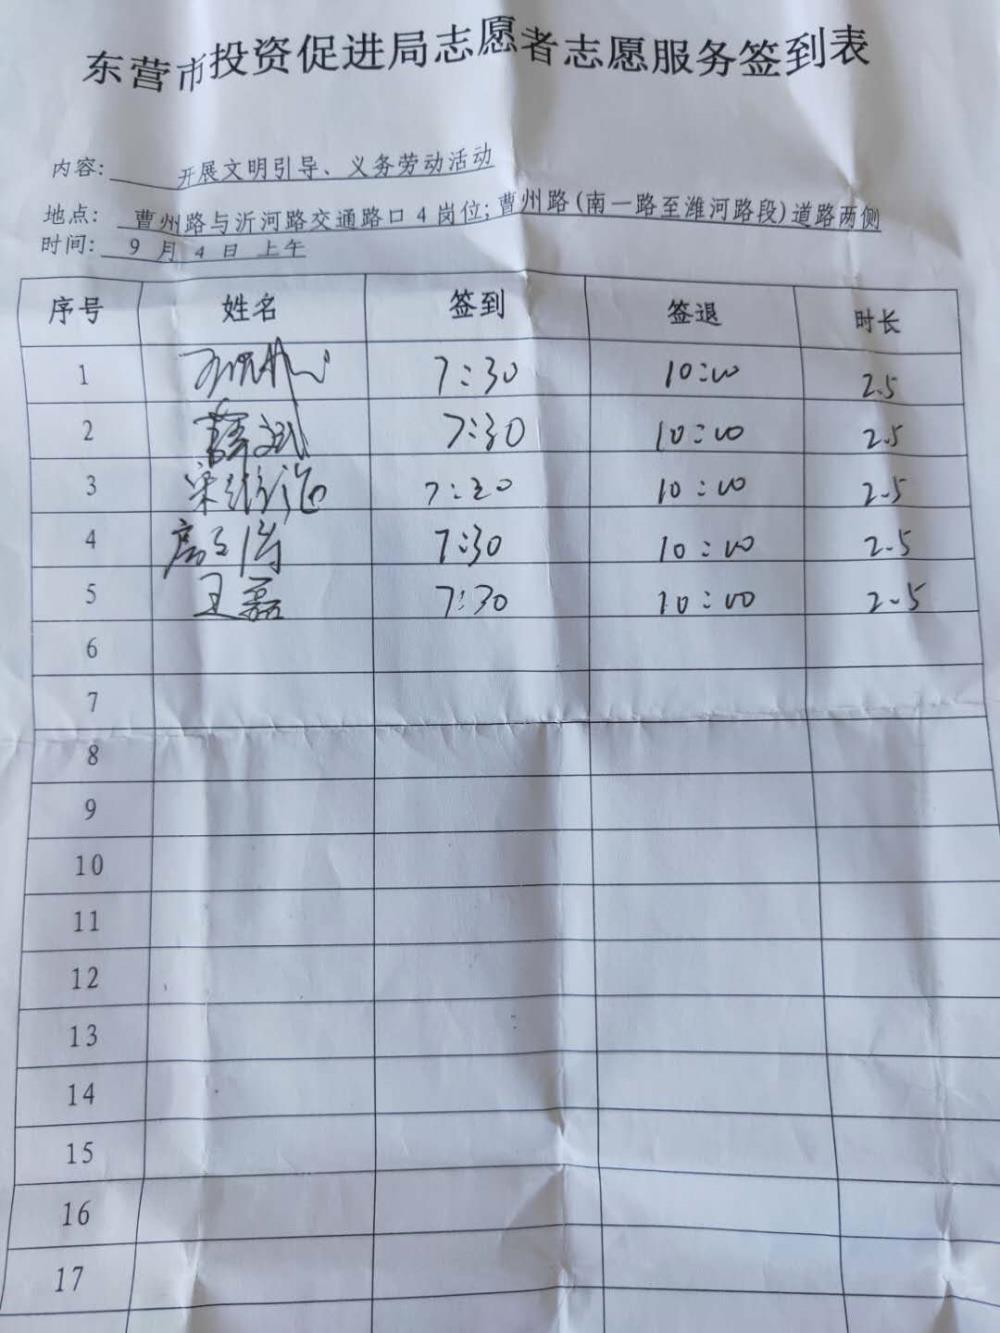 东营市投资促进局志愿者志愿服务签到表
内容: 开展文明引导、义务劳动活动
地点: 曹州路与沂河路交通路口4岗位;曹州路(南一路至潍河路段)道路两侧
时间: 9月4日上午
序号 姓名 签到 签退 时长
1 7:30 10:00 2.5
2 薛斌 7:30 10:00 2.5
3 7:30 10:00 2.5
4 7:30 10:00 2.5
5 王磊 7:30 10:00 2.5
6
7
8
9
10
11
12
13
14
15
16
17